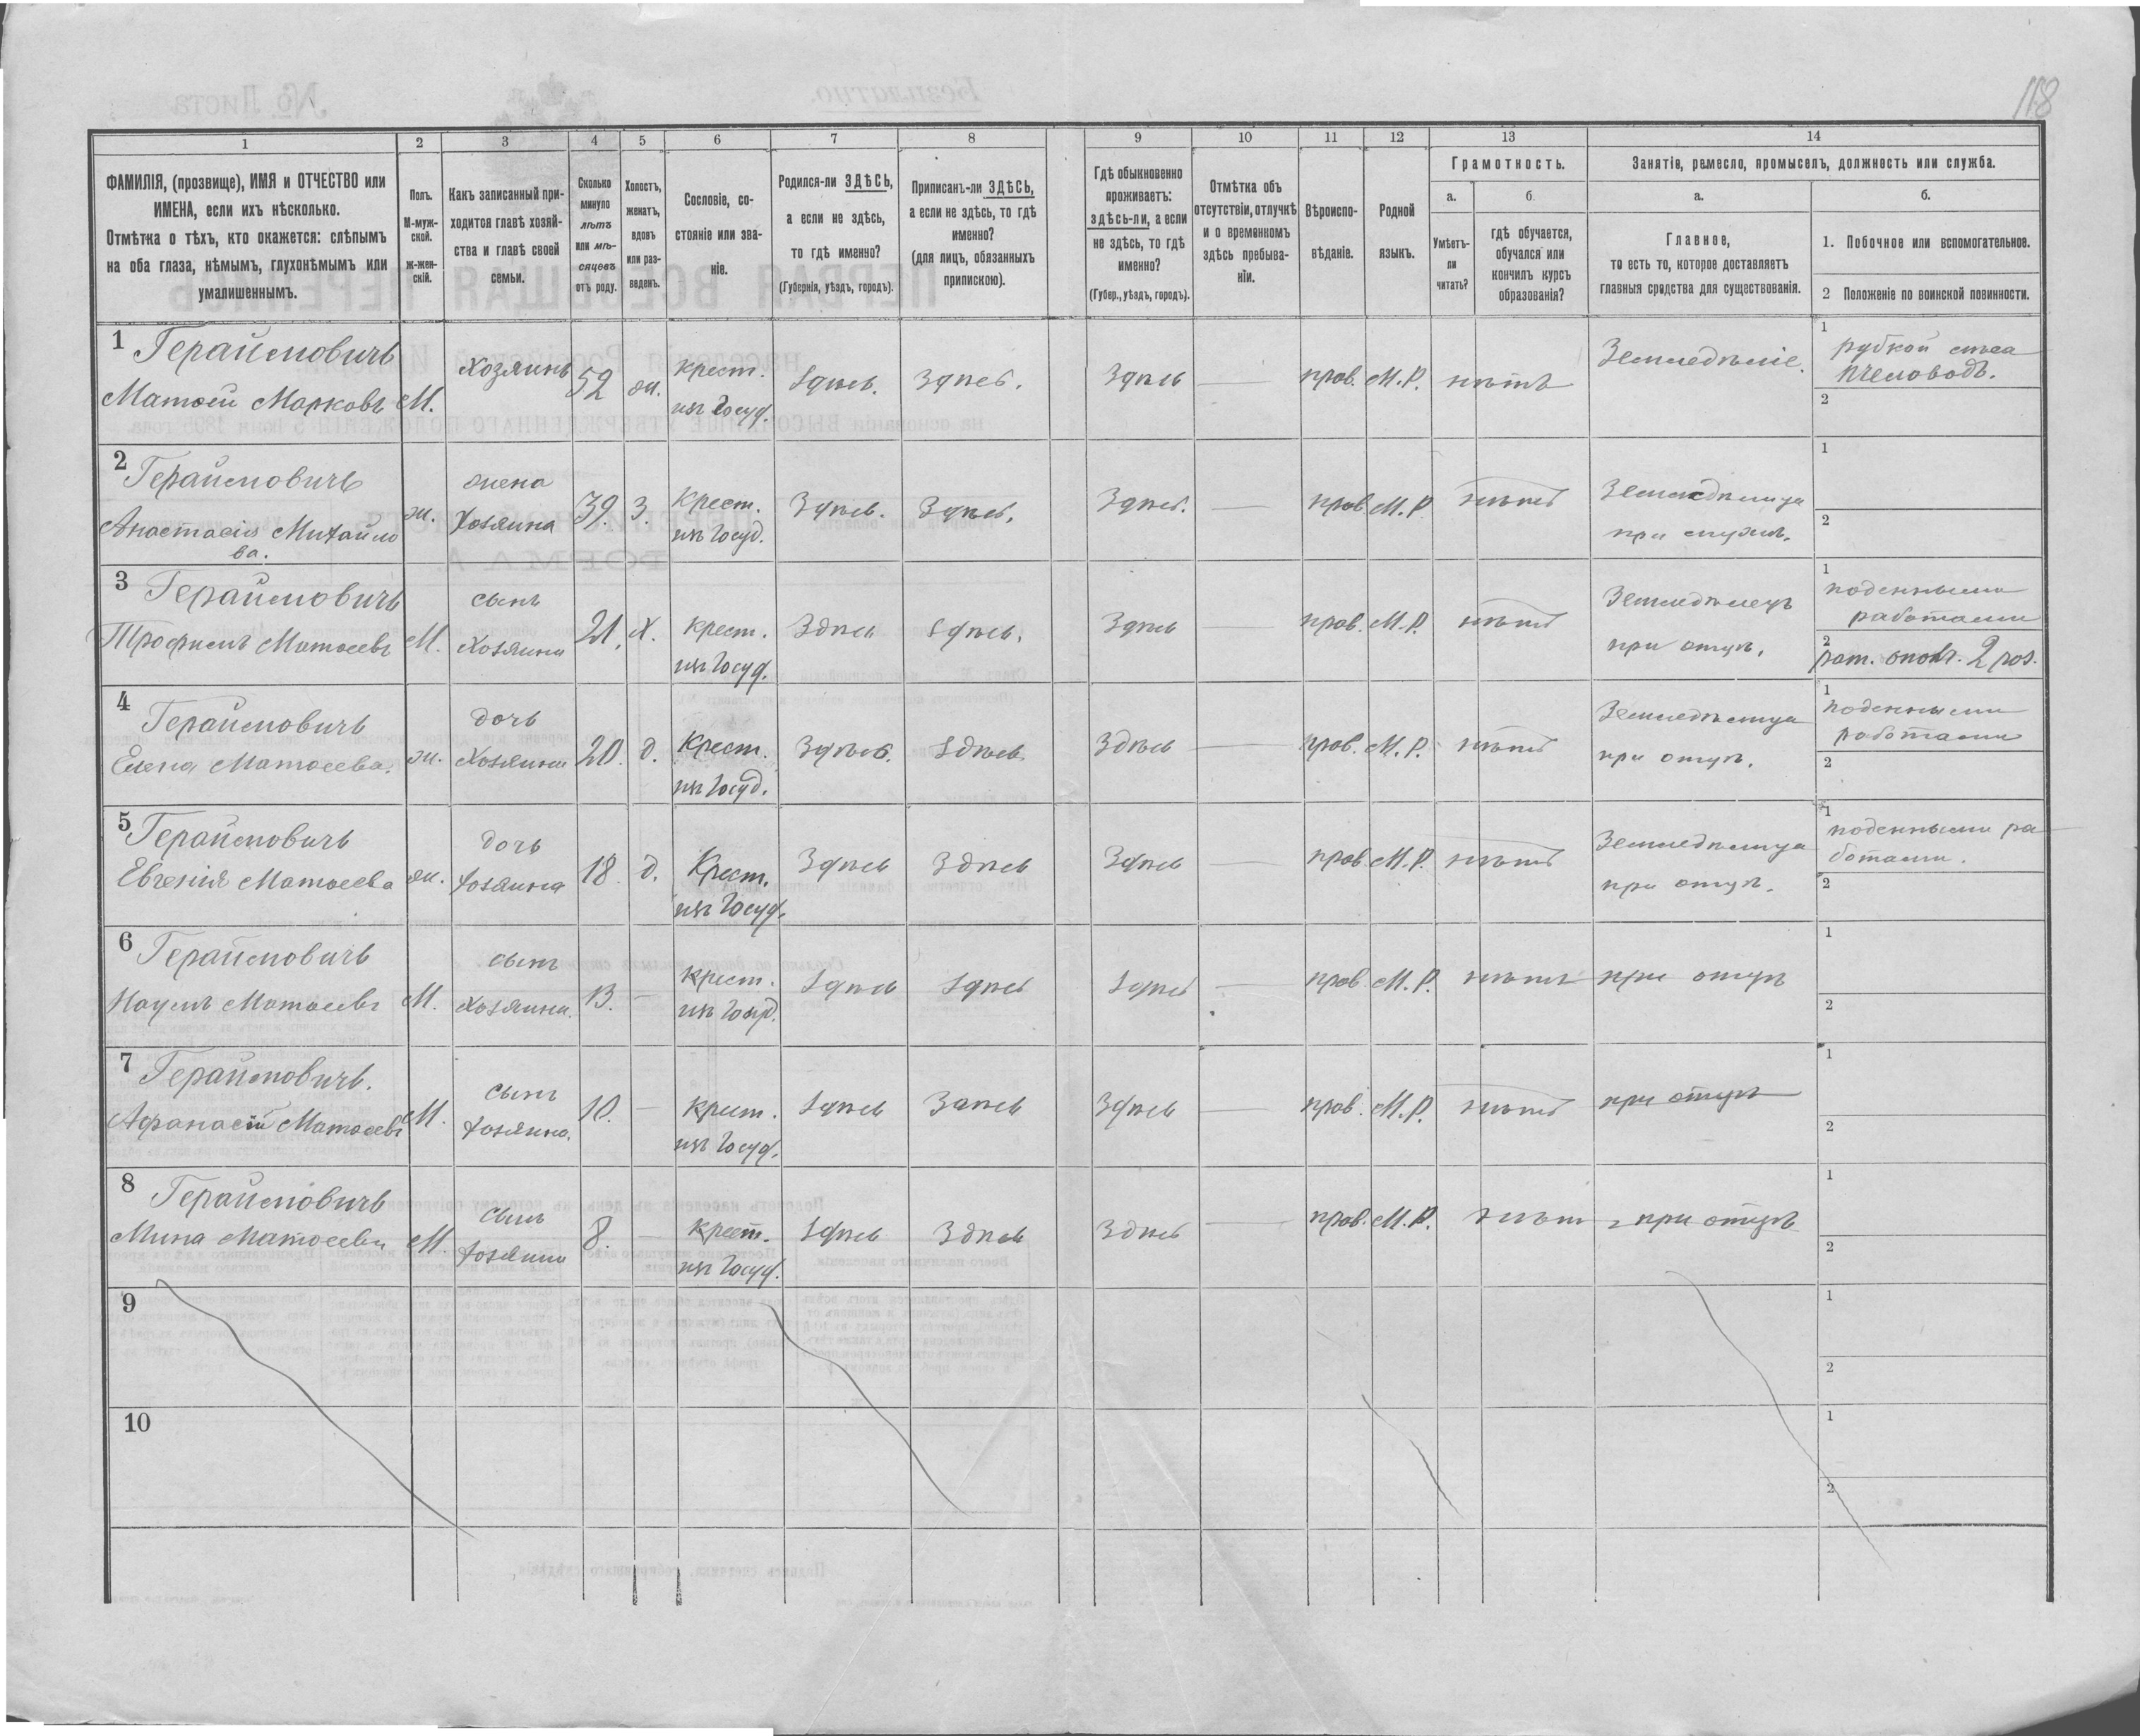 118
1
2
3
4
5
6
7
8
9
10
11
12
13
14
ФАМИЛІЯ, (прозвище), ИМЯ и ОТЧЕСТВО или
ИМЕНА, если ихъ нѣсколько.
Отмѣтка о тѣхъ, кто окажется: слѣпымъ
на оба глаза, нѣмымъ, глухонѣмымъ или
умалишеннымъ.
Полъ.
М-муж-
ской.
ж-жен-
скій.
Какъ записанный при-
ходится главѣ хозяй-
ства и главѣ своей
семьи.
Сколько
минуло
лѣтъ
или мѣ-
сяцевъ
отъ роду.
Холостъ,
женатъ,
вдовъ
или раз-
веденъ.
Сословіе, со-
стояніе или зва-
ніе.
Родился-ли ЗДѢСЬ,
а если не здѣсь,
то гдѣ именно?
(Губернія, уѣздъ, городъ).
Приписанъ-ли ЗДѢСЬ,
а если не здѣсь, то гдѣ
именно?
(для лицъ, обязанныхъ
припискою).
Гдѣ обыкновенно
проживаетъ:
здѣсь-ли, а если
не здѣсь, то гдѣ
именно?
(Губер., уѣздъ, городъ).
Отмѣтка объ
отсутствіи, отлучкѣ
и о временномъ
здѣсь пребыва-
ніи.
Вѣроиспо-
вѣданіе.
Родной
языкъ.
Грамотность.
а.
Умѣетъ-
ли
читать?
б.
гдѣ обучается,
обучался или
кончилъ курсъ
образованія?
Занятіе, ремесло, промыселъ, должность или служба.
а.
Главное,
то есть то, которое доставляетъ
главныя средства для существованія.
б.
1. Побочное или вспомогательное.
2 Положеніе по воинской повинности.
1 Гераймовичъ
Матѳей Марковъ
М.
Хозяинъ
52
ж.
крест.
изъ госуд.
Здѣсь.
Здѣсь.
Здѣсь
прав.
М.Р.
нѣтъ
Земледѣліе.
1
рубкой
пчеловодъ.
2
2 Гераймовичъ
Анастасія Михайло
ва.
ж.
жена
Хозяина
39.
З.
Крест.
изъ госуд.
Здѣсь.
Здѣсь.
Здѣсь.
прав
М.Р
нѣтъ
Земледѣлица
при мужѣ.
1
2
3 Гераймовичъ
Трофимъ Матѳеевъ
М.
сынъ
Хозяина
21.
Х.
крест.
изъ госуд.
Здѣсь
Здѣсь.
Здѣсь
прав.
М.Р.
нѣтъ
Земледѣлецъ
при отцѣ.
1
поденными
работами
2
рат. опол. 2 раз.
4 Гераймовичъ
Елена Матѳеева.
ж.
дочь
Хозяина
20.
д.
Крест.
изъ госуд.
Здѣсь.
Здѣсь
Здѣсь
прав.
М.Р.
нѣтъ
Земледѣлица
при отцѣ.
1
поденными
работами
2
5 Гераймовичъ
Евгенія Матѳеева
ж.
дочь
Хозяина
18.
д.
Крест.
изъ госуд.
Здѣсь
Здѣсь
Здѣсь
прав
М.Р.
нѣтъ
Земледѣлица
при отцѣ.
1
поденными ра
ботами.
2
6 Гераймовичъ
Наумъ Матѳеевъ
М.
сынъ
Хозяина.
13.
крест.
изъ госуд.
Здѣсь
Здѣсь
Здѣсь
прав
М.Р.
нѣтъ
при отцѣ
1
2
7 Гераймовичъ.
Афанасій Матѳеевъ
М.
сынъ
Хозяина.
10.
крест.
изъ госуд.
Здѣсь
Здѣсь
Здѣсь
прав.
М.Р.
нѣтъ
при отцѣ
1
2
8 Гераймовичъ
Мина Матѳеевъ
М.
сынъ
Хозяина
8.
крест.
изъ госуд.
Здѣсь
Здѣсь
Здѣсь
прав.
М.Р.
нѣтъ
при отцѣ
1
2
9
1
2
10
1
2